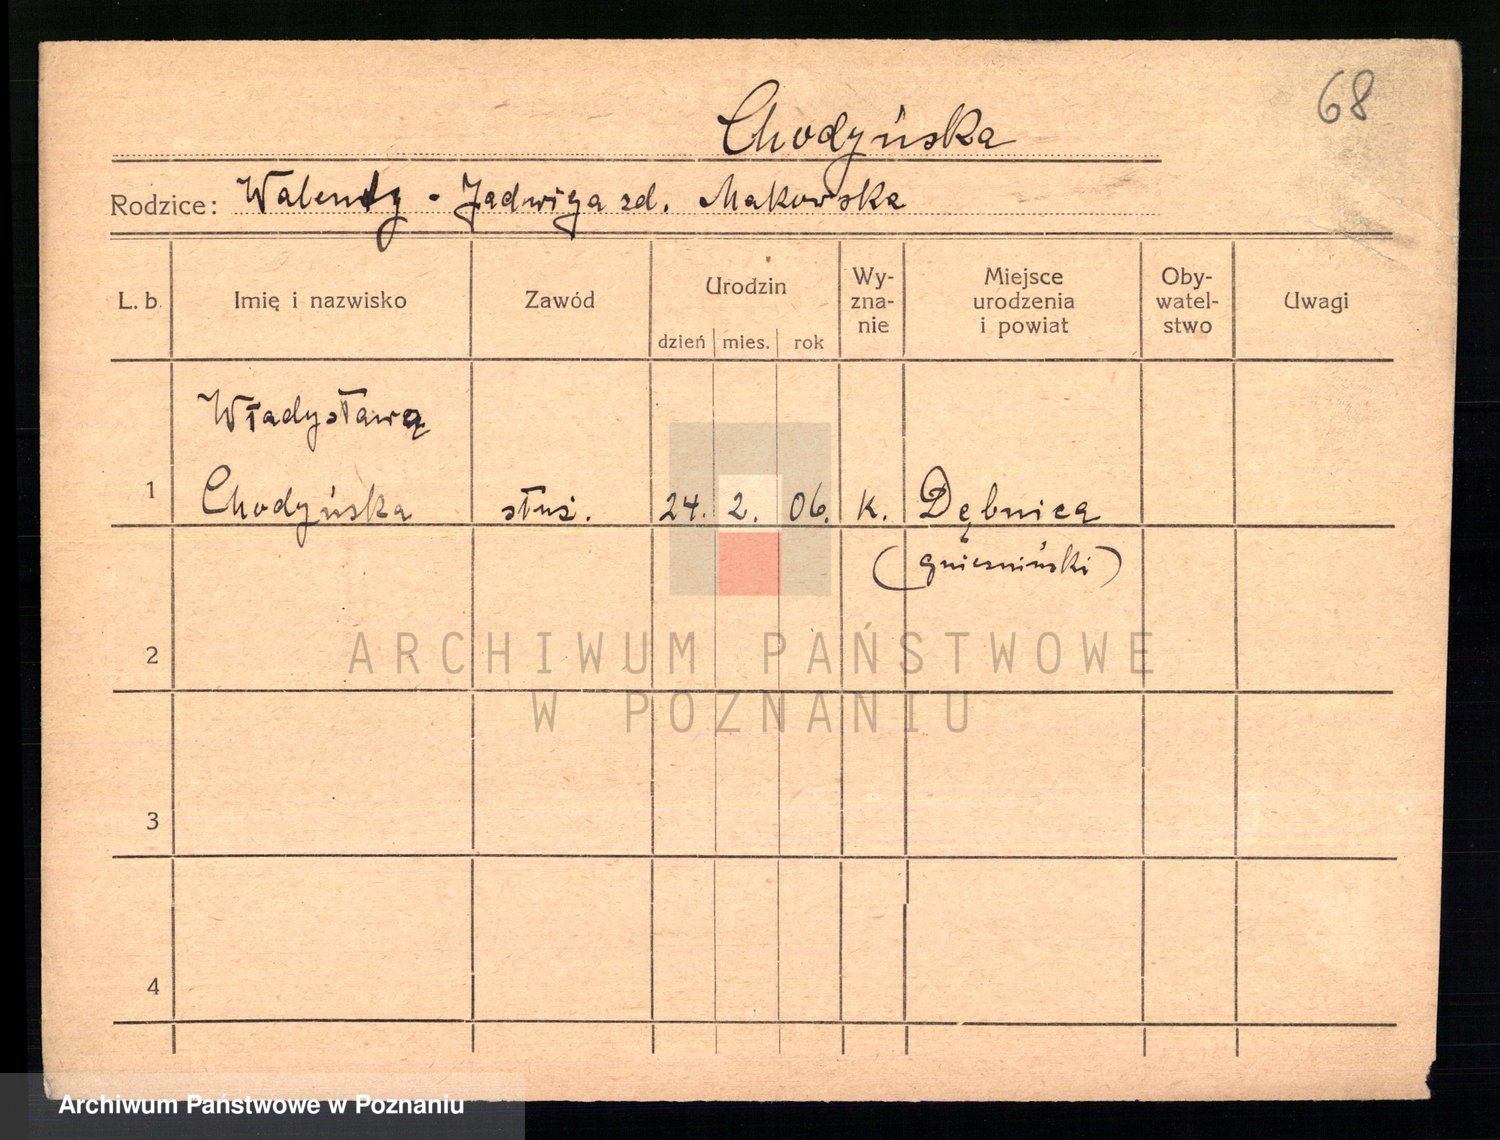 68
Chodyńska
Rodzice: Walenty - Jadwiga zd. Makowska
L. b. Imię i nazwisko Zawód Urodzin dzień mies. rok Wy-zna-nie Miejsce urodzenia i powiat Oby-watel-stwo Uwagi
Władysława
1 Chodyńska służ. 24. 2. 06. k. Dębnica
(gnieźnieński)
2
ARCHIWUM PAŃSTWOWE
W POZNANIU
3
4
Archiwum Państwowe w Poznaniu